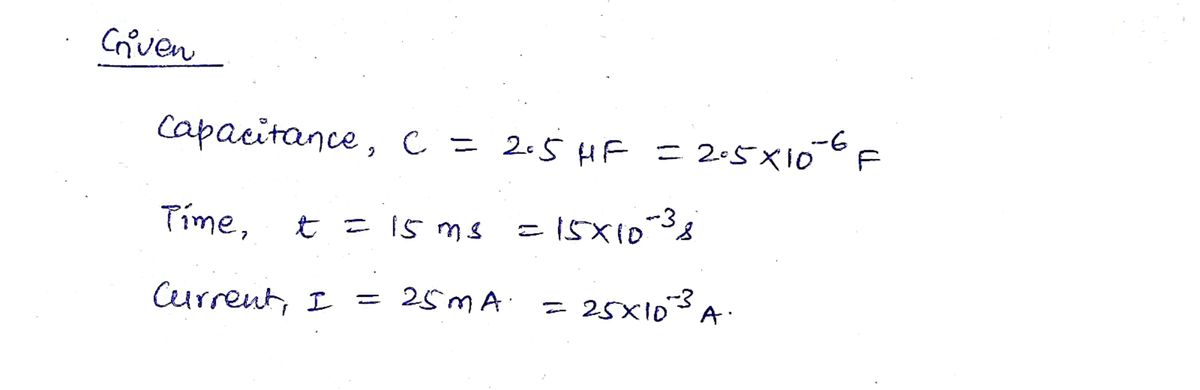 Given
Capacitance, C = 2.5 μF = 2.5×10⁻⁶ F
Time, t = 15 ms = 15×10⁻³ s
Current, I = 25 mA. = 25×10⁻³ A.